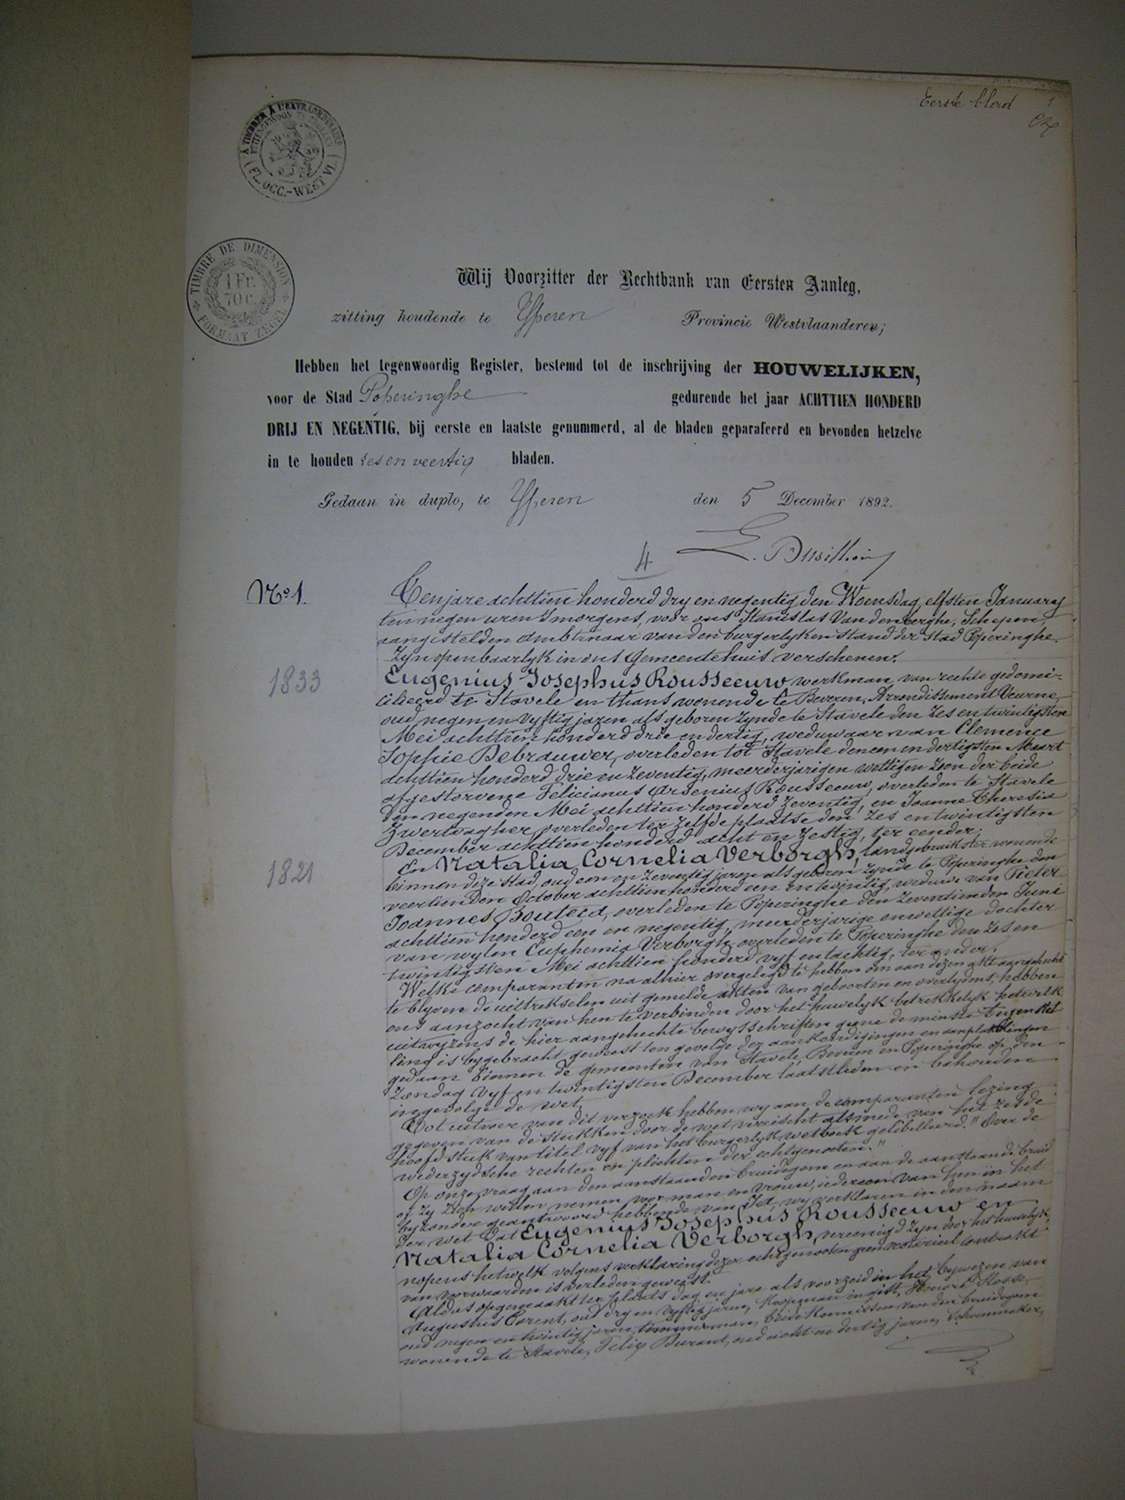 Eerste blad
1
A TIMBRER A L'EXTRAORDINAIRE
FL. OCC.-WEST VL.
TIMBRE DE DIMENSION
1 Fr.
70 c.
FORMAAT ZEGEL
Wij Voorzitter der Rechtbank van Eersten Aanleg,
zitting houdende te Yperen Provincie Westvlaanderen;
Hebben het tegenwoordig Register, bestemd tot de inschrijving der HOUWELIJKEN,
voor de Stad Poperinghe gedurende het jaar ACHTTIEN HONDERD
DRIJ EN NEGENTIG, bij eerste en laatste genummerd, al de bladen geparafeerd en bevonden hetzelve
in te houden zes en veertig bladen.
Gedaan in duplo, te Yperen den 5 December 1892.
4
No 1.
Ten jare achttien honderd dry en negentig den Woensdag, elfsten January
ten negen uren 's morgens, voor ons Stanislas Van den berghe, Schepen,
aangestelden ambtenaar van den burgerlyken stand der Stad Poperinghe.
Zyn openbaarlyk in ons Gemeentehuis verschenen:
1833
Eugenius Josephus Rousseeuw werkman, van rechte gedomi-
cilieerd te Stavele en thans wonende te Beveren, Arrondissement Veurne,
oud negen en vyftig jaren als geboren zynde te Stavele den zes en twintigsten
Mei achttien honderd drie en dertig, weduwaar van Clemence
Sophie Debrauwer, overleden tot Stavele den een en dertigsten Maart
achttien honderd drie en zeventig, meerderjarigen wettigen zoon der beide
afgestorvene Felicianus Arsenius Rousseeuw, overleden te Stavele
den negenden Mei achttien honderd zeventig, en Joanna Theresia
Zwertvagher, overleden ter zelfde plaatse den zes en twintigsten
December achttien honderd acht en zestig, ter eender;
1821
En Natalia Cornelia Verborgh, landgebruikster, wonende
binnen deze stad, oud een en zeventig jaren als geboren zynde te Poperinghe den
veertienden October achttien honderd een en twintig, weduwe van Pieter
Joannes overleden te Poperinghe den zeventienden Juni
achttien honderd een en negentig, meerderjarige onwettige dochter
van wylen Euphemia Verborgh, overleden te Poperinghe den zes en
twintigsten Mei achttien honderd vyf en tachtig, ter ander;
Welke comparanten na alhier overgelegd te hebben om aan dezen akt aangehecht
te blyven de uittrekselen uit gemelde akten van geboorten en overlydens, hebben
ons aanzocht van hen te verbinden door het huwelyk betrekkelyk hetwelk
uitwyzens de hier aangehechte bewysschriften geene de minste tegenstel
ling is bygebracht geweest ten gevolge der aankondigingen en aanplakkingen
gedaan binnen de gemeenten van Stavele, Beveren en Poperinghe op den
Zondag vyf en twintigsten December laatstleden en behouden
ingevolge de wet.
Tot uitvoer van dit verzoek hebben wy aan de comparanten lezing
gegeven van de stukken door de wet vereischt alsmede van het zesde
hoofdstuk van titel vyf van het burgerlyk wetboek gelibelleerd "Over de
wederzydsche rechten en plichten der echtgenoten."
Op onze vraag aan den aanstaanden bruidegom en aan de aanstaande bruid
of zy zich willen nemen voor man en vrouw, iedereen van hen in het
byzonder geantwoord hebbende van Ja, wy verklaren in den naam
der wet Dat Eugenius Josephus Rousseeuw en
Natalia Cornelia Verborgh, vereenigd zyn door het huwelyk,
nopens hetwelk volgens verklaring dezer echtgenoten geen notarieel contrakt
van voorwaarden is verleden geweest.
Aldus opgemaakt ter plaats dag en jare als voorzeid in het bywezen van
Augustus Torent, oud dry en vyftig jaren, koopman in gist, Honoré
oud negen en twintig jaren, timmerman, beide kennissen van den bruidegom
wonende te Stavele, Felix Durant, oud acht en dertig jaren,